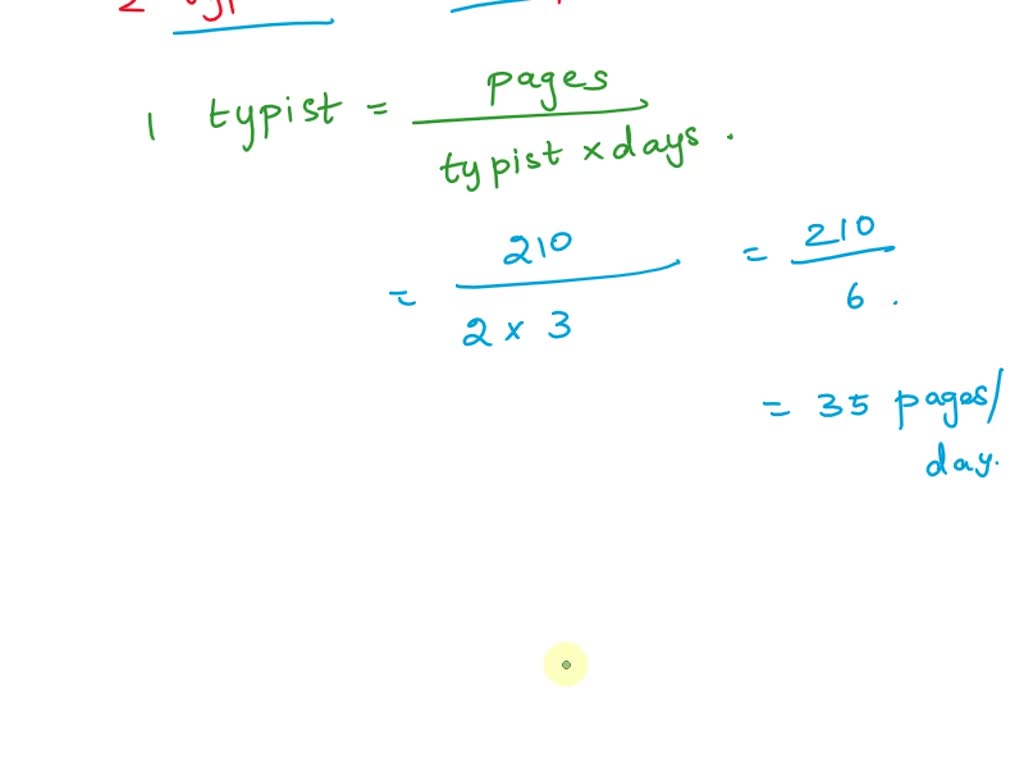 2
1 typist = pages
typist × days .
= 210 = 210
2 × 3 6 .
= 35 pages/
day.